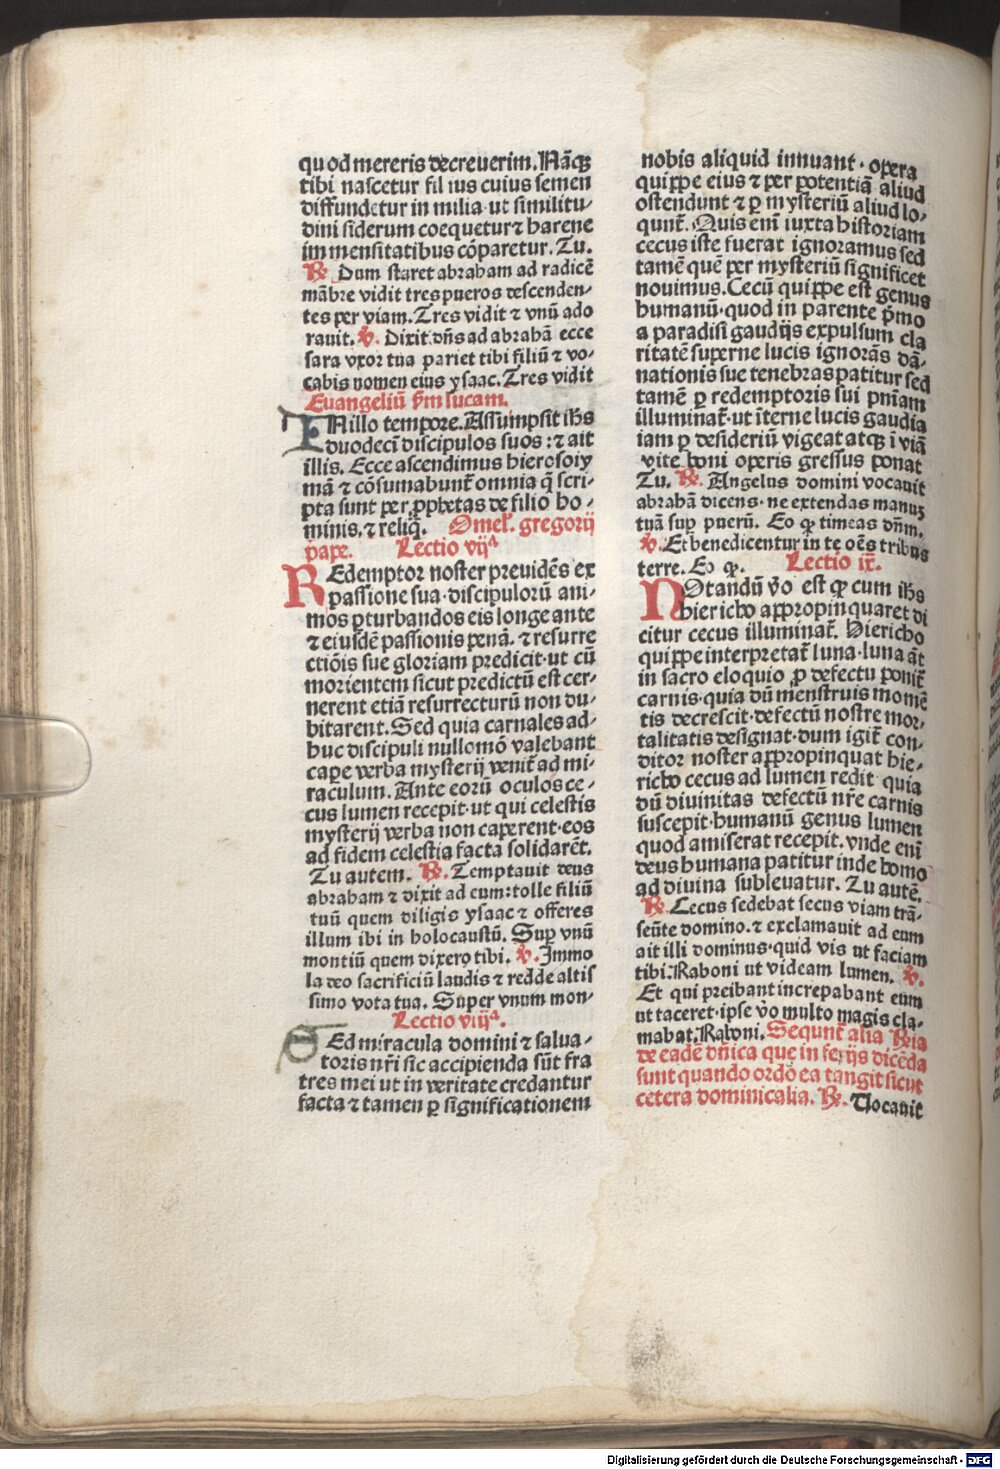 quod mereris decreuerim. Nāqꝫ
tibi nascetur filius cuius semen
diffundetur in milia · ut similitu⸗
dini siderum coequetur ⁊ harene
immensitatibus cōparetur. Tu.
℟. Dum staret abraham ad radicē
mābre vidit tres pueros descenden⸗
tes per viam. Tres vidit ⁊ vnū ado
rauit. ℣. Dixit dn̄s ad abrahā ecce
sara vxor tua pariet tibi filiū ⁊ vo⸗
cabis nomen eius ysaac. Tres vidit
Euangeliū ẜm lucam.
IN illo tempore. Assumpsit ih̄s
duodecī discipulos suos : ⁊ ait
illis. Ecce ascendimus hierosoly
mā ⁊ cōsumabunt̄ omnia q̄ scri⸗
pta sunt per ꝓphetas de filio ho⸗
minis. ⁊ reliq̄. Omel̄. gregorij
pape. Lectio vijᵃ
REdemptor noster preuidēs ex
passione sua · discipulorū ani⸗
mos ꝑturbandos eis longe ante
⁊ eiusdē passionis penā. ⁊ resurre
ctiōis sue gloriam predicit · ut cū
morientem sicut predictū est cer⸗
nerent etiā resurrecturū non du⸗
bitarent. Sed quia carnales ad⸗
huc discipuli nullomō valebant
capere verba mysterij venit̄ ad mi⸗
raculum. Ante eorū oculos ce⸗
cus lumen recepit · ut qui celestis
mysterij verba non caperent · eos
ad fidem celestia facta solidarēt.
Tu autem. ℟. Temptauit deus
abraham ⁊ dixit ad eum : tolle filiū
tuū quem diligis ysaac ⁊ offeres
illum ibi in holocaustū. Suꝑ vnū
montiū quem dixero tibi. ℣. Immo
la deo sacrificiū laudis ⁊ redde altis
simo vota tua. Super vnum mon⸗
Lectio viijᵃ.
SEd miracula domini ⁊ salua⸗
toris nr̄i sic accipienda sūt fra
tres mei ut in veritate credantur
facta ⁊ tamen ꝑ significationem
nobis aliquid innuant · opera
quippe eius ⁊ per potentiā aliud
ostendunt ⁊ ꝑ mysteriū aliud lo⸗
qunt̄. Quis enī iuxta historiam
cecus iste fuerat ignoramus sed
tamē quē per mysteriū significet
nouimus. Cecū quippe est genus
humanū · quod in parente pͥmo
a paradisi gaudijs expulsum cla
ritatē superne lucis ignorās dā⸗
nationis sue tenebras patitur sed
tamē ꝑ redemptoris sui pn̄iam
illuminat̄ · ut īterne lucis gaudia
iam ꝑ desideriū vigeat atqꝫ ī viā
vite boni operis gressus ponat
Tu. ℟. Angelus domini vocauit
abrahā dicens · ne extendas manuꝫ
tuā suꝑ puerū. Eo ꝙ timeas dn̄m.
℣. Et benedicentur in te oēs tribus
terre. Eo ꝙ. Lectio ix̄.
NOtandū v̄o est ꝙ cum ih̄s
hiericho appropinquaret di
citur cecus illuminat̄. Hiericho
quippe interpretat̄ luna · luna āt
in sacro eloquio ꝓ defectu ponit̄
carnis · quia dū menstruis momē
tis decrescit · defectū nostre mor⸗
talitatis designat · dum igit̄ con⸗
ditor noster appropinquat hie⸗
richo cecus ad lumen redit quia
dū diuinitas defectū nr̄e carnis
suscepit · humanū genus lumen
quod amiserat recepit. vnde enī
deus humana patitur inde homo
ad diuina subleuatur. Tu autē.
℟. Cecus sedebat secus viam trā⸗
seūte domino. ⁊ exclamauit ad eum
ait illi dominus · quid vis ut faciam
tibi : Raboni ut videam lumen. ℣.
Et qui preibant increpabant eum
ut taceret · ipse v̄o multo magis cla⸗
mabat. Raboni. Sequnt̄ alia ℟ia
de eadē dn̄ica que in ferijs dicēda
sunt quando ordo ea tangit sicut
cetera dominicalia. ℟. Vocauit
Digitalisierung gefördert durch die Deutsche Forschungsgemeinschaft - DFG